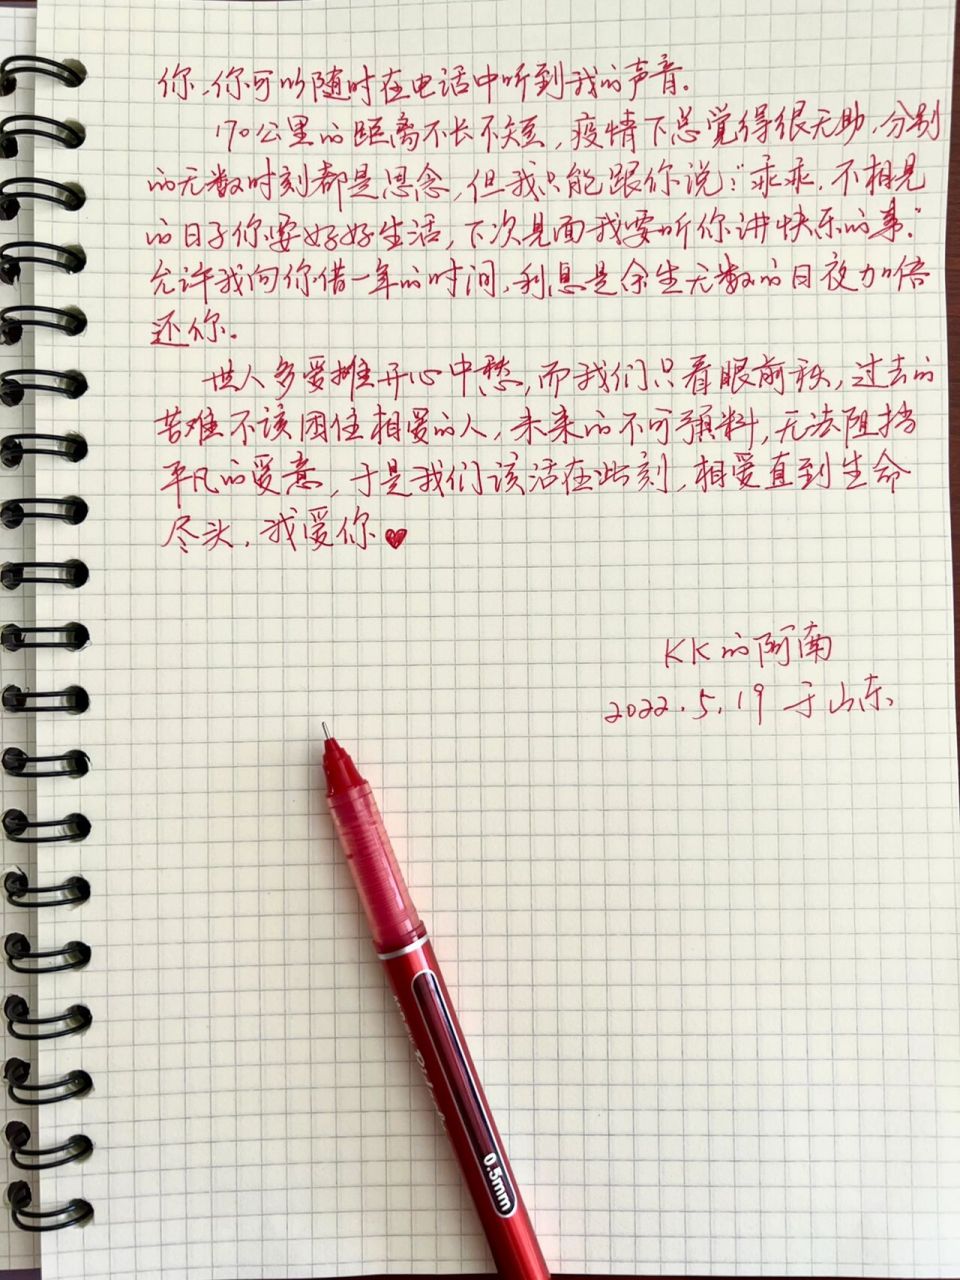 你，你可以随时在电话中听到我的声音。
170公里的距离不长不短，疫情下总觉得很无助，分别
的无数时刻都是思念，但我只能跟你说："乖乖，不相见
的日子你要好好生活，下次见面我要听你讲快乐的事。"
允许我向你借一年的时间，利息是余生无数的日夜加倍
还你。
世人多爱摊开心中愁，而我们只看眼前秋，过去的
苦难不该困住相爱的人，未来的不可预料，无法阻挡
平凡的爱意，于是我们该活在此刻，相爱直到生命
尽头，我爱你
KK的阿南
2022.5.19 于山东
0.5mm